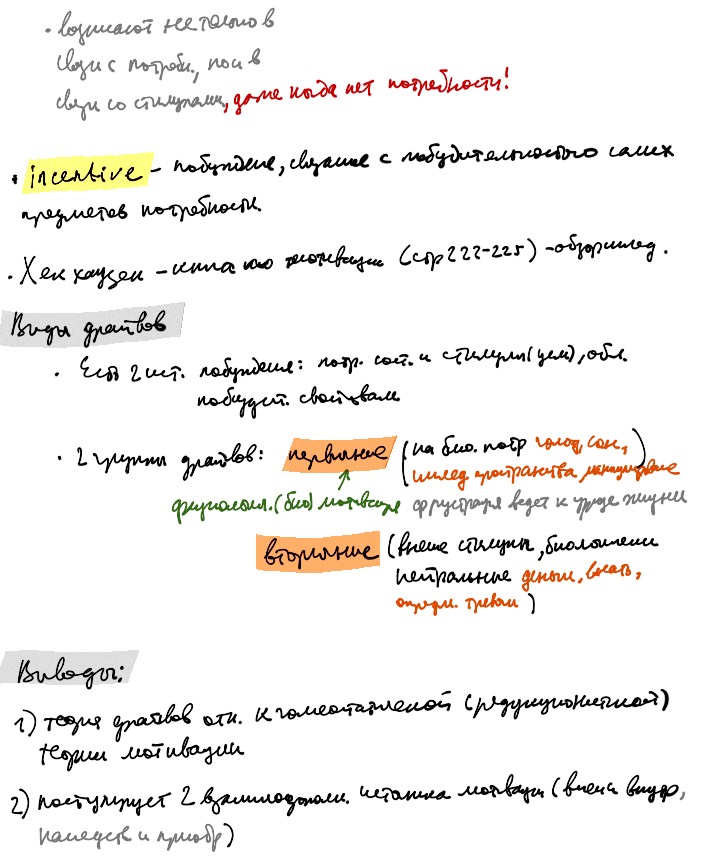 · возникают не только в
связи с потребн., но и в
связи со стимулами, даже когда нет потребности!
· incentive – побуждение, связанное с побудительностью самих
предметов потребности.
· Хекхаузен – книга по мотивации (стр 222-225) –
Виды драйвов
· Есть 2 ист. побуждения: потр. сост. и стимулы (цели), обл.
побудит. свойствами
· 2 группы драйвов: первичные (на био. потр голод, сон,
исслед. пространства, манипулирование)
физиологич. (био) мотивация фрустрация ведет к угрозе жизни
вторичные (внешние стимулы, биологически
нейтральные деньги, власть,
тревоги)
Выводы:
1) теория драйвов отн. к гомеостатической (редукционистской)
теории мотивации
2) постулирует 2 взаимодополн. источника мотивации (внешн внутр,
наследств и приобр)